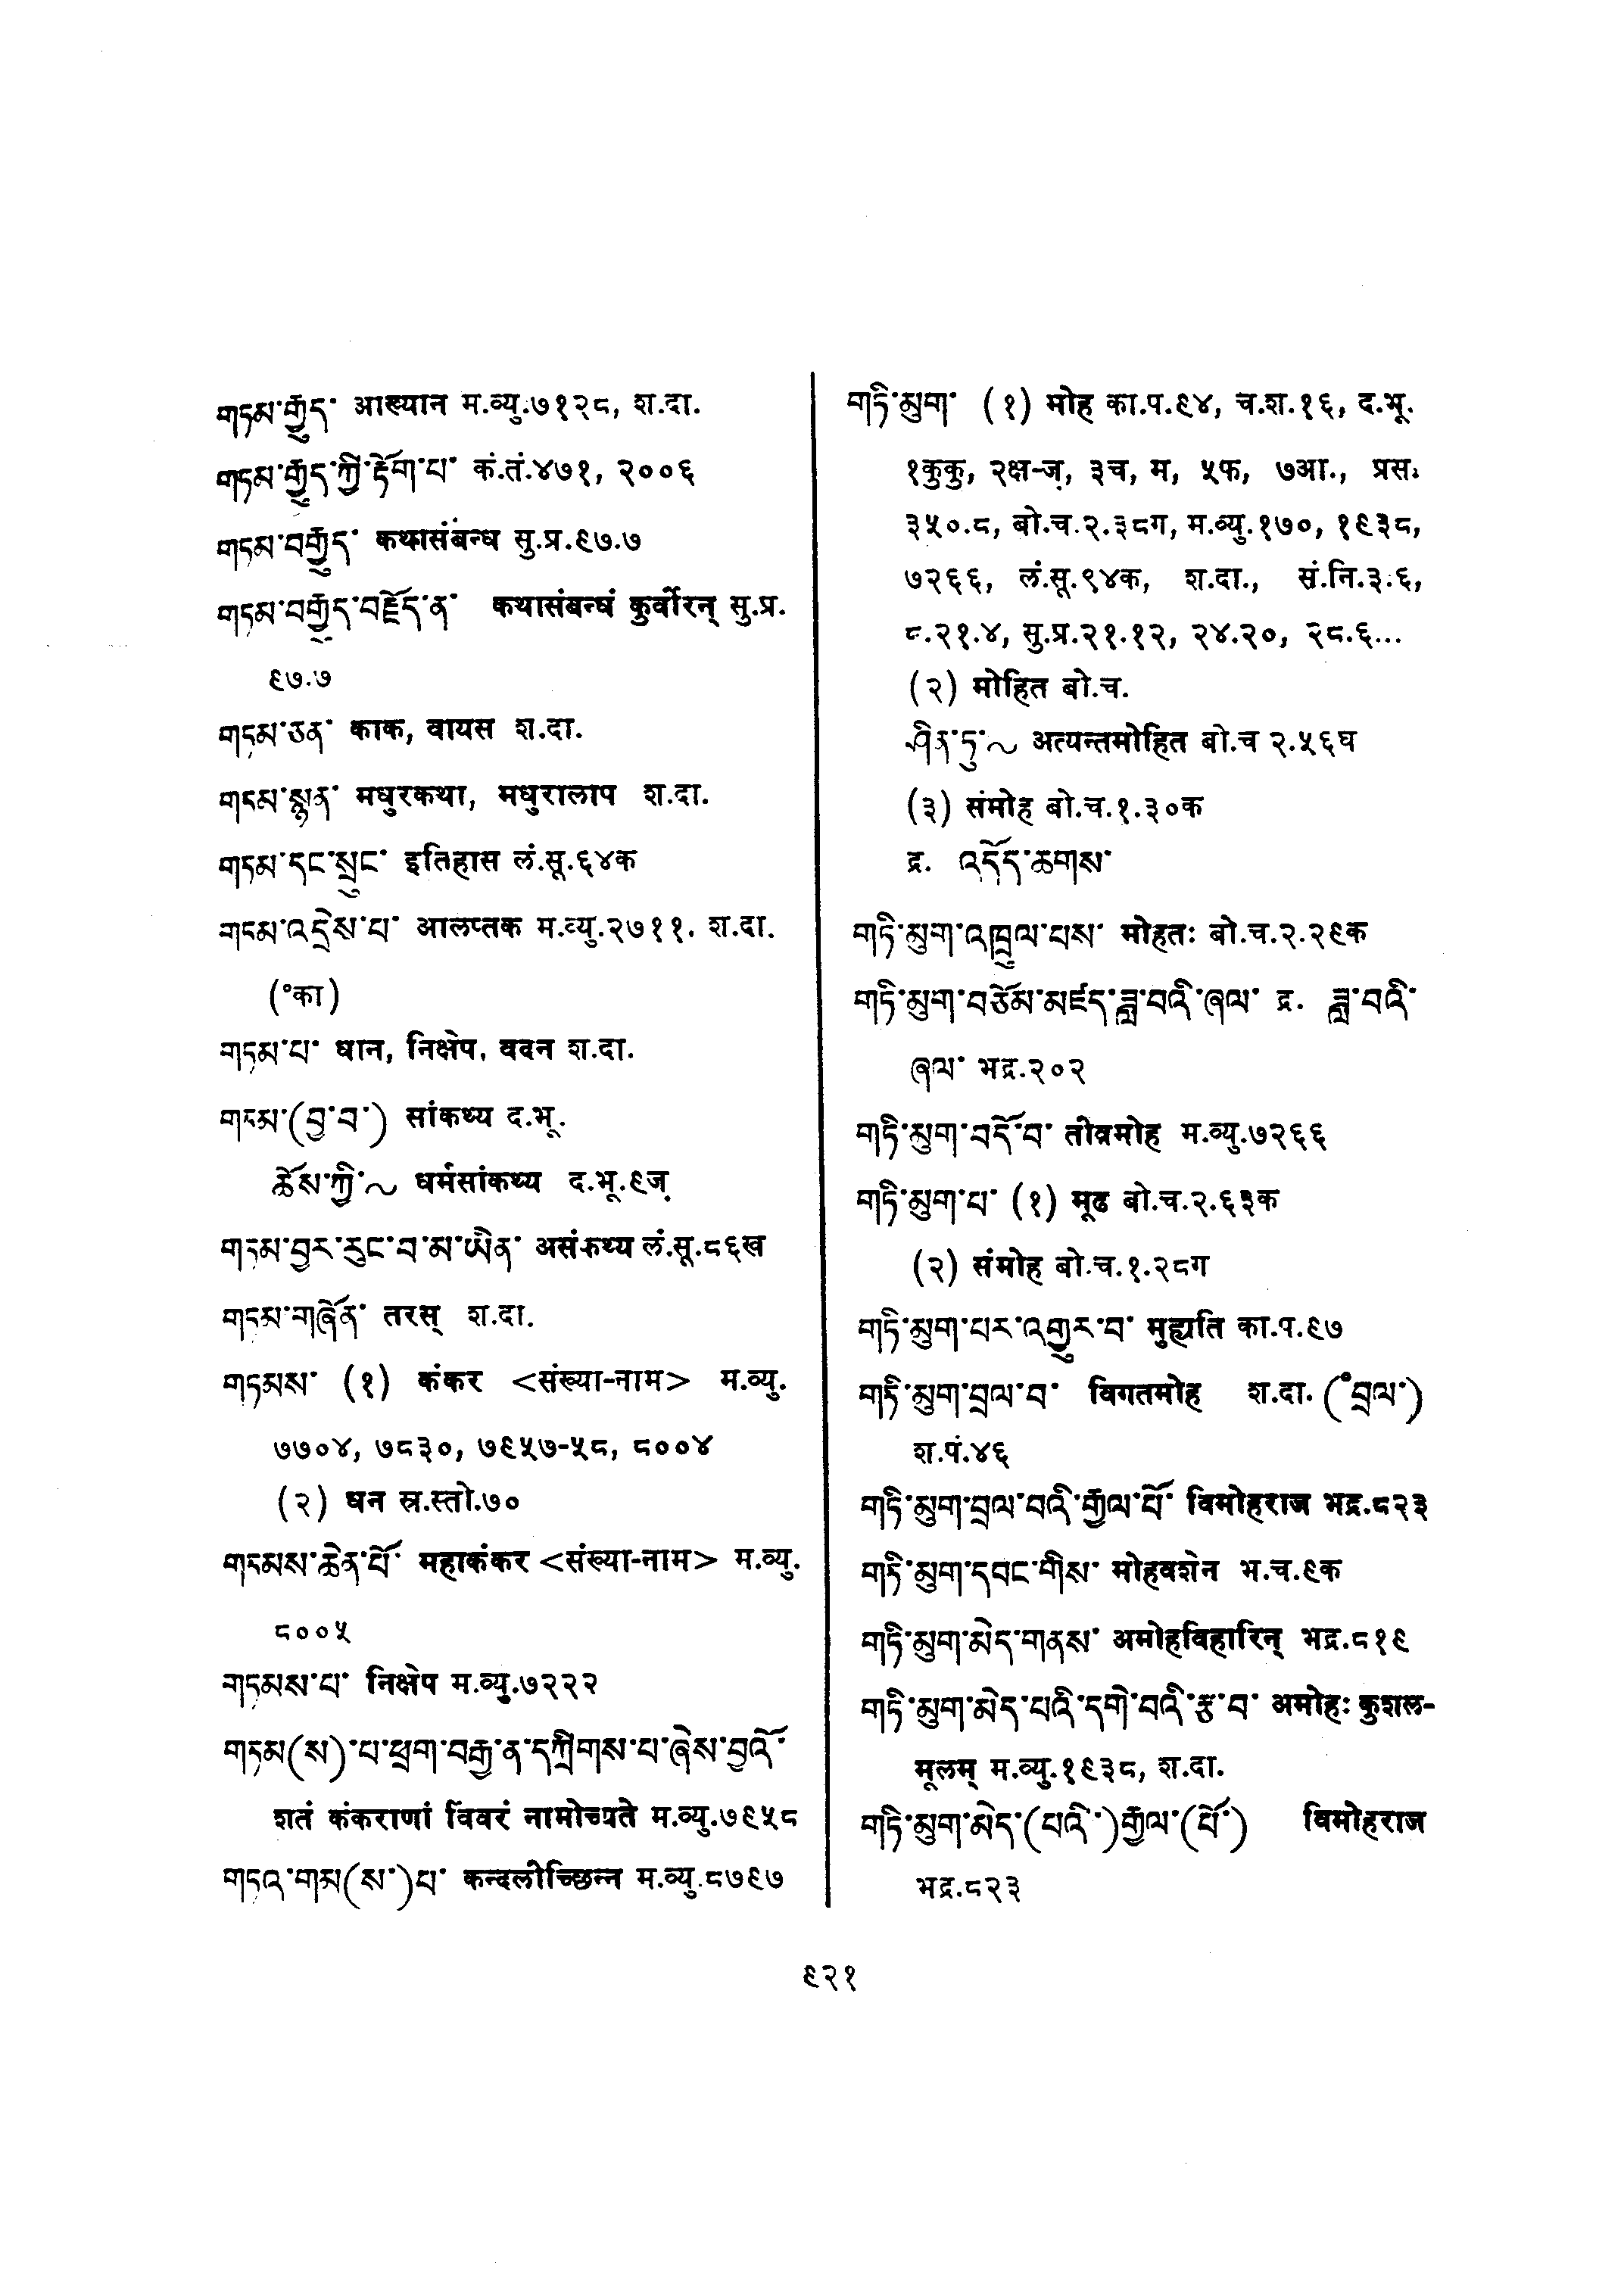 གཏམ་རྒྱུད་ आख्यान म.व्यु.७१२८, श.दा.
གཏམ་རྒྱུད་ཀྱི་རྟོག་པ་ कं.तं.४७१, २००६
གཏམ་བརྒྱུད་ कथासंबन्ध सु.प्र.९७.७
གཏམ་བརྒྱུད་བརྗོད་ན་ कथासंबन्धं कुर्वीरन् सु.प्र.
९७.७
གཏམ་ཅན་ काक, वायस श.दा.
གཏམ་སྙན་ मधुरकथा, मधुरालाप श.दा.
གཏམ་དང་སྲུང་ इतिहास लं.सू.६४क
གཏམ་འདྲེས་པ་ आलप्तक म.व्यु.२७११. श.दा.
(°का)
གཏམ་པ་ धान, निक्षेप, वदन श.दा.
གཏམ་(བྱ་བ་) सांकथ्य द.भू.
ཆོས་ཀྱི་~ धर्मसांकथ्य द.भू.९ज़
གཏམ་བྱར་རུང་བ་མ་ཡིན་ असंकथ्य लं.सू.८६ख
གཏམ་གཞོན་ तरस् श.दा.
གཏམས་ (१) कंकर <संख्या-नाम> म.व्यु.
७७०४, ७८३०, ७९५७-५८, ८००४
(२) धन स्र.स्तो.७०
གཏམས་ཆེན་པོ་ महाकंकर <संख्या-नाम> म.व्यु.
८००५
གཏམས་པ་ निक्षेप म.व्यु.७२२२
གཏམ(ས)་པ་ཕྲག་བརྒྱ་ན་དཀྲིགས་པ་ཞེས་བྱའོ་
शतं कंकराणां विवरं नामोच्यते म.व्यु.७९५८
གཏའ་གམ(ས་)པ་ कन्दलीच्छिन्न म.व्यु.८७९७
གཏི་མུག་ (१) मोह का.प.९४, च.श.१६, द.भू.
१कुकु, २क्ष-ज़, ३च, म, ५फ, ७आ., प्रस.
३५०.८, बो.च.२.३८ग, म.व्यु.१७०, १९३८,
७२६६, लं.सू.९४क, श.दा., सं.नि.३.६,
८.२१.४, सु.प्र.२१.१२, २४.२०, २८.६...
(२) मोहित बो.च.
ཤིན་ཏུ་~ अत्यन्तमोहित बो.च २.५६घ
(३) संमोह बो.च.१.३०क
द्र. འདོད་ཆགས་
གཏི་མུག་འཁྲུལ་པས་ मोहतः बो.च.२.२९क
གཏི་མུག་བཅོམ་མཛད་ཟླ་བའི་ཞལ་ द्र. ཟླ་བའི་
ཞལ་ भद्र.२०२
གཏི་མུག་བདོ་བ་ तीव्रमोह म.व्यु.७२६६
གཏི་མུག་པ་ (१) मूढ बो.च.२.६३क
(२) संमोह बो.च.१.२८ग
གཏི་མུག་པར་འགྱུར་བ་ मुह्यति का.प.९७
གཏི་མུག་བྲལ་བ་ विगतमोह श.दा. (°བྲལ་)
श.पं.४६
གཏི་མུག་བྲལ་བའི་རྒྱལ་པོ་ विमोहराज भद्र.८२३
གཏི་མུག་དབང་གིས་ मोहवशेन भ.च.९क
གཏི་མུག་མེད་གནས་ अमोहविहारिन् भद्र.८१९
གཏི་མུག་མེད་པའི་དགེ་བའི་རྩ་བ་ अमोहः कुशल-
मूलम् म.व्यु.१९३८, श.दा.
གཏི་མུག་མེད་(པའི་)རྒྱལ་(པོ་) विमोहराज
भद्र.८२३
९२१